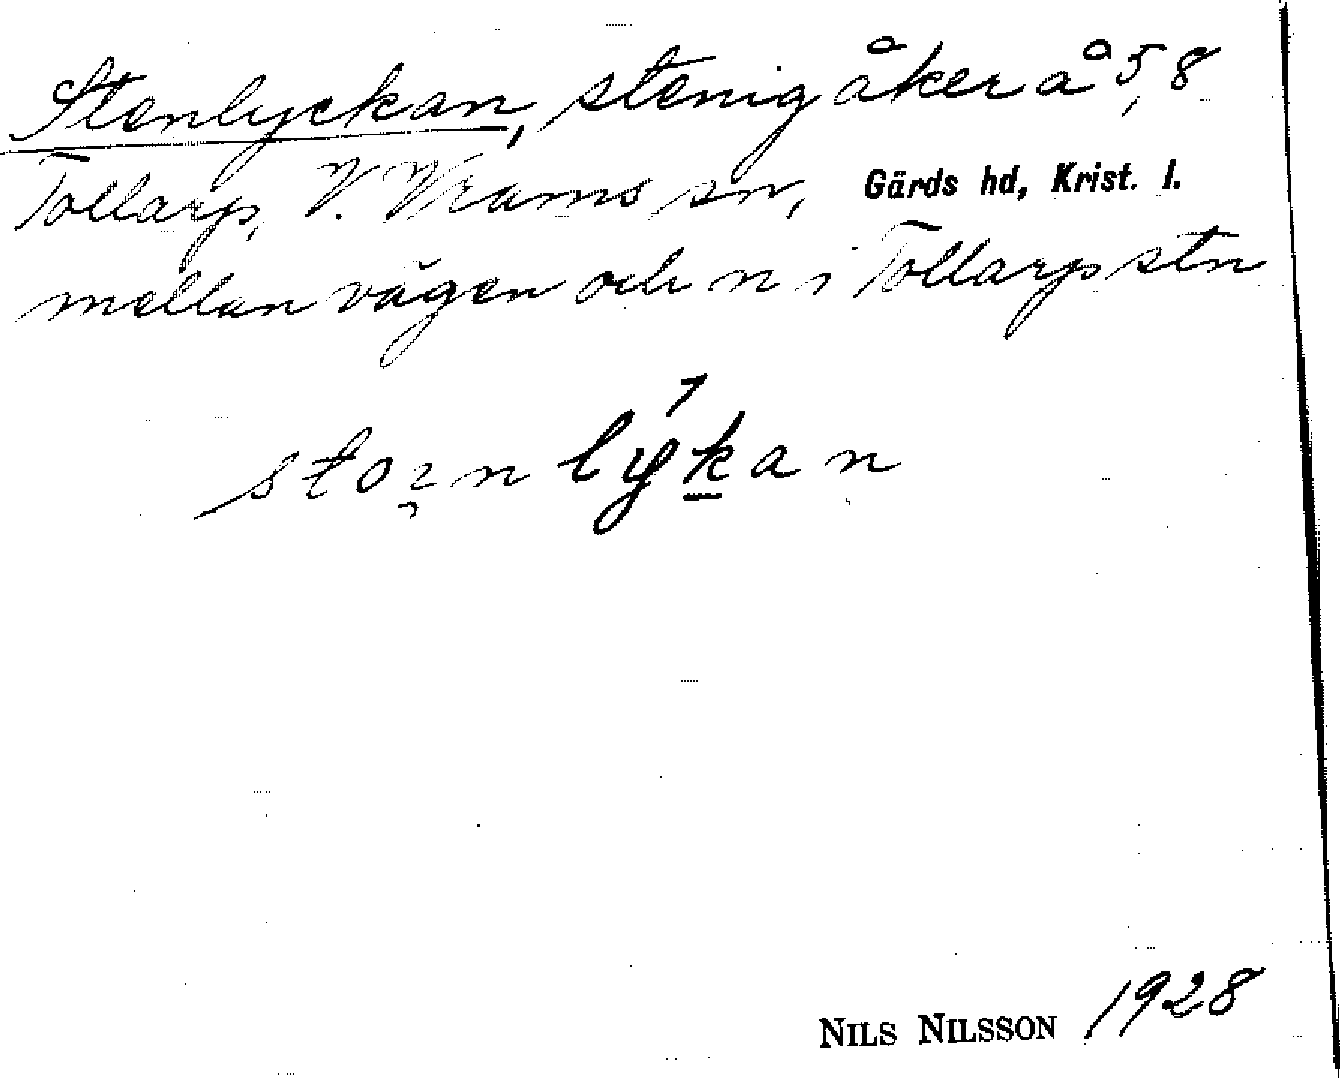 Stenlyckan, stenig åker å 5,8
Tollarp, V. Vrams sn, Gärds hd, Krist. l.
mellan vägen och n i Tollarps stn
lýkan
NILS NILSSON 1928